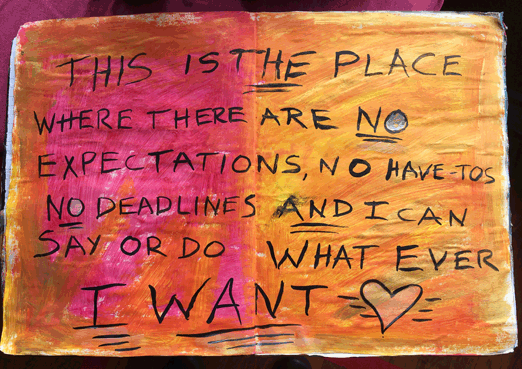 THIS IS THE PLACE
WHERE THERE ARE NO
EXPECTATIONS, NO HAVE-TOS
NO DEADLINES AND I CAN
SAY OR DO WHAT EVER
I WANT